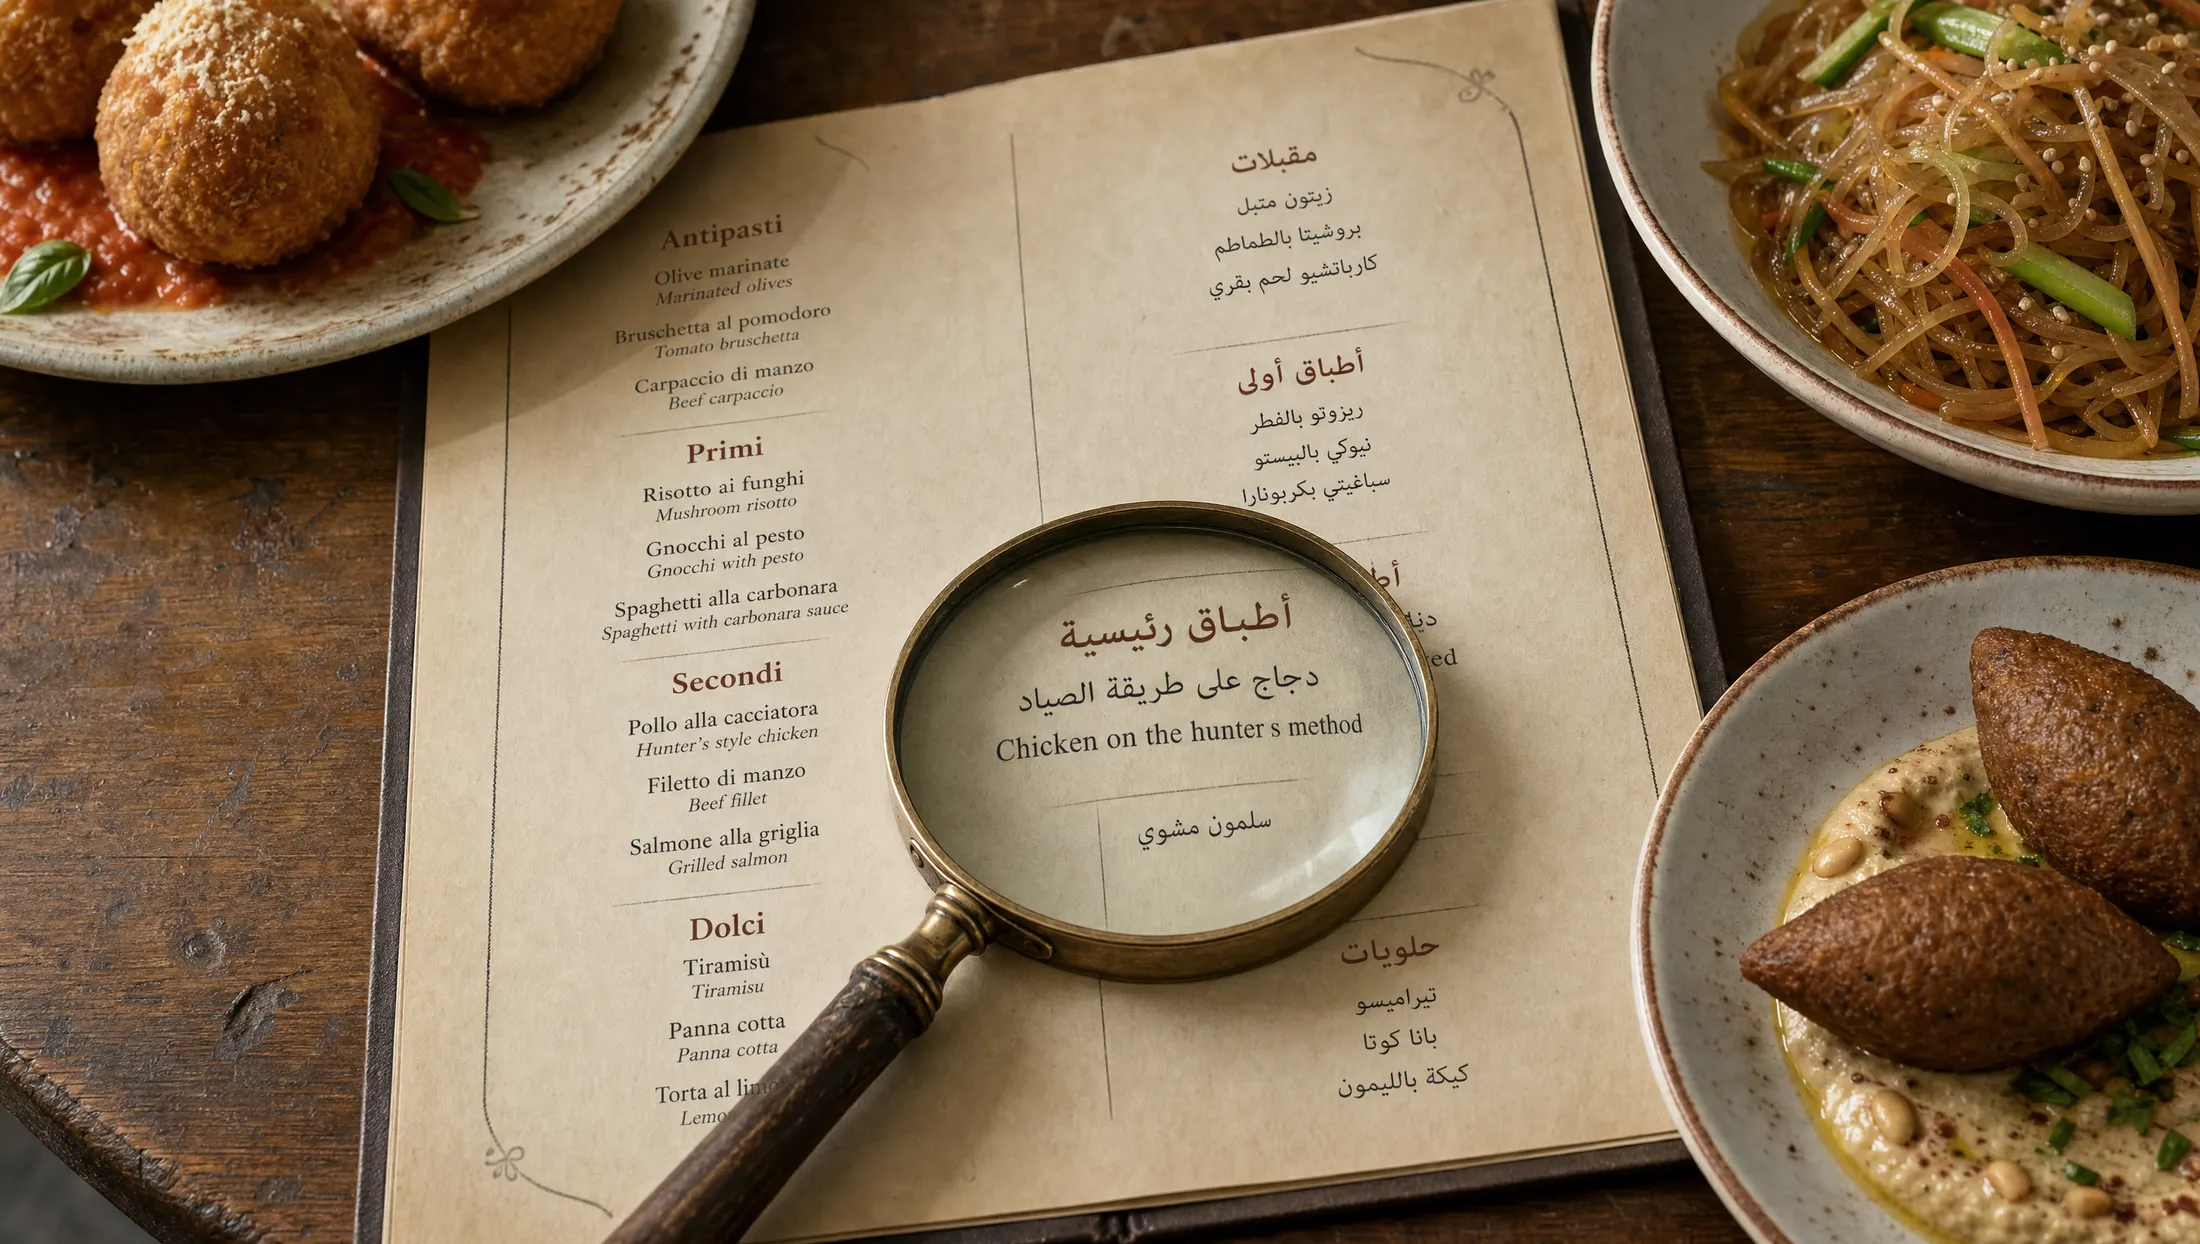 Antipasti
Olive marinate
Marinated olives
Bruschetta al pomodoro
Tomato bruschetta
Carpaccio di manzo
Beef carpaccio
Primi
Risotto ai funghi
Mushroom risotto
Gnocchi al pesto
Gnocchi with pesto
Spaghetti alla carbonara
Spaghetti with carbonara sauce
Secondi
Pollo alla cacciatora
Hunter's style chicken
Filetto di manzo
Beef fillet
Salmone alla griglia
Grilled salmon
Dolci
Tiramisù
Tiramisu
Panna cotta
Panna cotta
Torta al limo
Lemo
مقبلات
زيتون متبل
بروشيتا بالطماطم
كارباتشيو لحم بقري
أطباق أولى
ريزوتو بالفطر
نيوكي بالبيستو
سباغيتي بكربونارا
أطباق رئيسية
دجاج على طريقة الصياد
Chicken on the hunter s method
سلمون مشوي
حلويات
تيراميسو
بانا كوتا
كيكة بالليمون